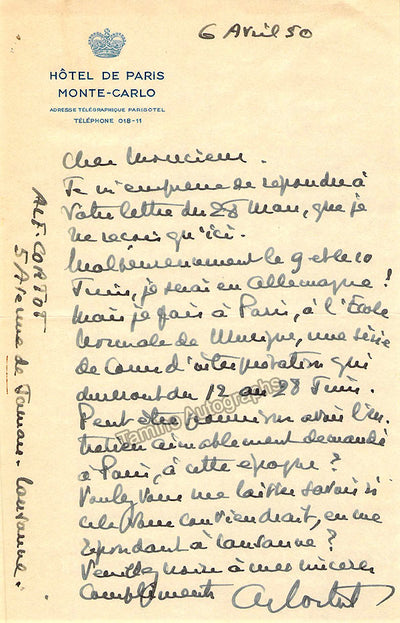 6 Avril 50
HÔTEL DE PARIS
MONTE-CARLO
ADRESSE TÉLÉGRAPHIQUE PARISOTEL
TÉLÉPHONE 018-11
Cher Monsieur.
Je m'empresse de répondre à
Votre lettre du 28 Mars, que je
ne reçois qu'ici.
Malheureusement le 9 et le 10
Juin, je serai en Allemagne !
Mais je fais à Paris, à l'École
Normale de Musique, une série
de Cours d'interprétation qui
dureront du 12 au 28 Juin.
Peut être pourrions avoir l'en
tretien aimablement demandé
à Paris, à cette époque ?
Voulez vous me laisser savoir si
cela vous conviendrait, en me
répondant à Lausanne ?
Veuillez croire à mes sincères
Compliments
Alf Cortot
ALF. CORTOT
5 Avenue de Jaman. Lausanne.
Tamino Autographs